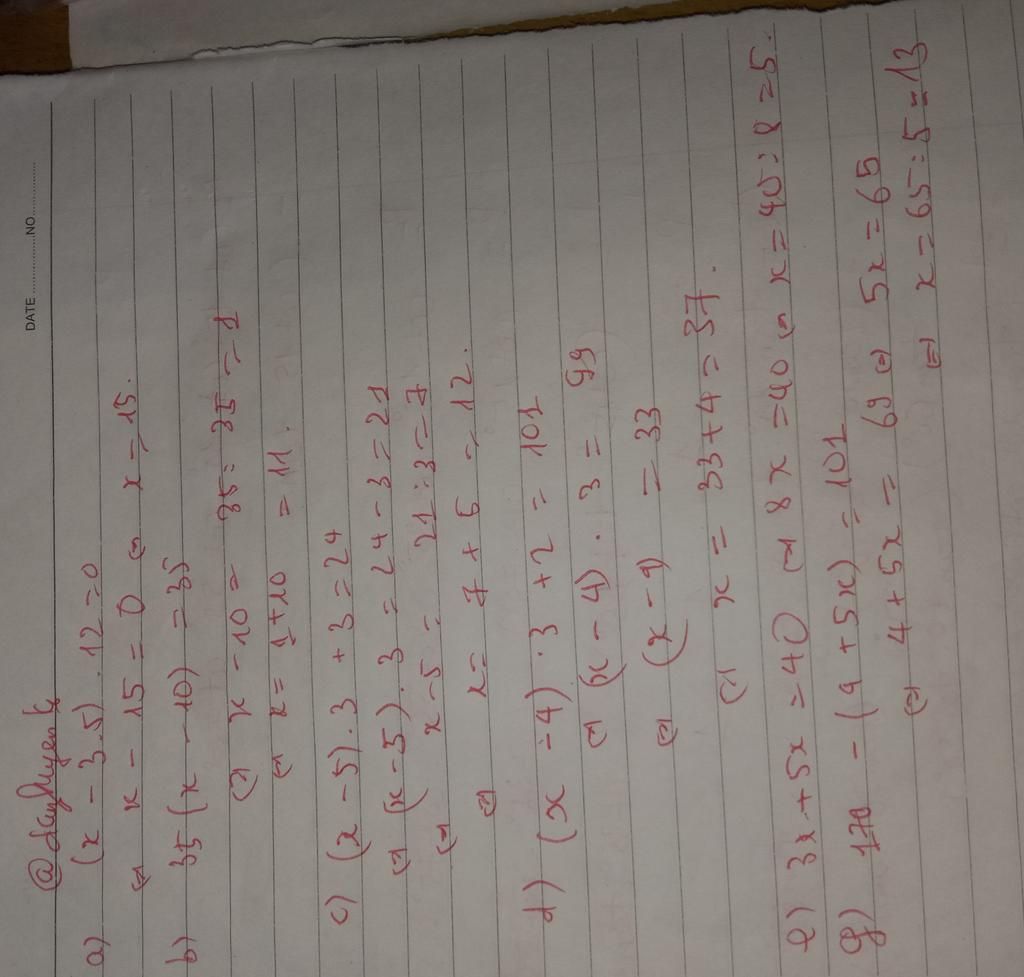 DATE ............... NO. ...............
a) (x - 3.5).12 = 0
⇔ x - 15 = 0 ⇔ x = 15.
b) 35(x - 10) = 35
⇔ x - 10 = 35 : 35 = 1
⇔ x = 1 + 10 = 11.
c) (x - 5).3 + 3 = 24
⇔ (x - 5).3 = 24 - 3 = 21
⇔ x - 5 = 21 : 3 = 7
⇔ x = 7 + 5 = 12.
d) (x - 4).3 + 2 = 101
⇔ (x - 4).3 = 99
⇔ (x - 4) = 33
⇔ x = 33 + 4 = 37.
e) 3x + 5x = 40 ⇔ 8x = 40 ⇔ x = 40 : 8 = 5.
g) 170 - (4 + 5x) = 101
⇔ 4 + 5x = 69 ⇔ 5x = 65
⇔ x = 65 : 5 = 13